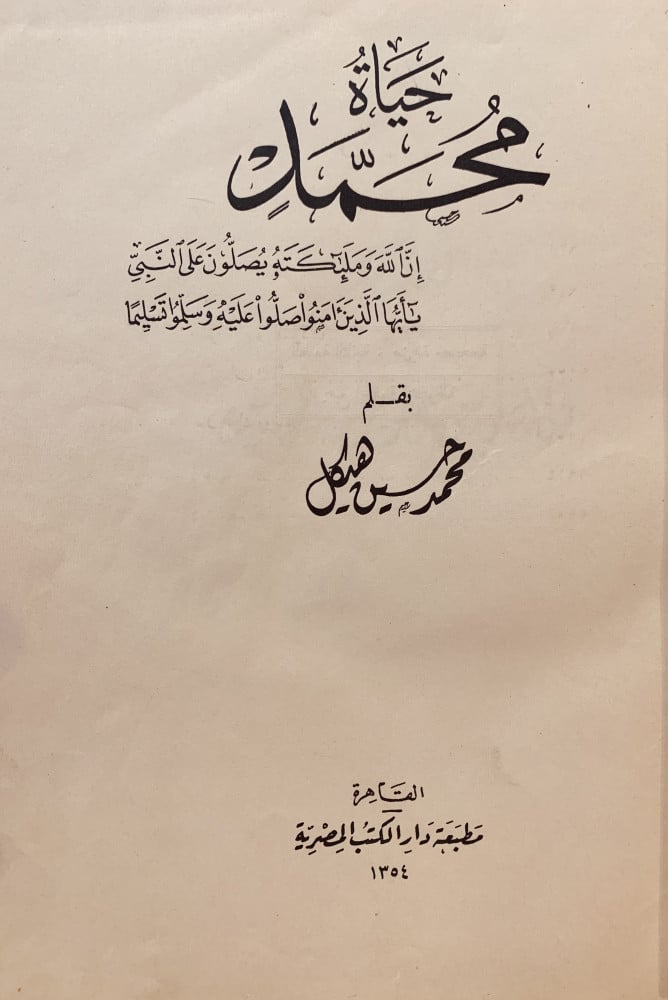 حَيَاةُ
مُحَمَّدٍ
إِنَّ ٱللَّهَ وَمَلَٰٓئِكَتَهُۥ يُصَلُّونَ عَلَى ٱلنَّبِيِّ
يَٰٓأَيُّهَا ٱلَّذِينَ ءَامَنُوا۟ صَلُّوا۟ عَلَيْهِ وَسَلِّمُوا۟ تَسْلِيمًا
بقـلم
محمد حسين هيكل
القـاهرة
مطبَعَة دَارِ الكتبُ المِصْرِيّة
١٣٥٤